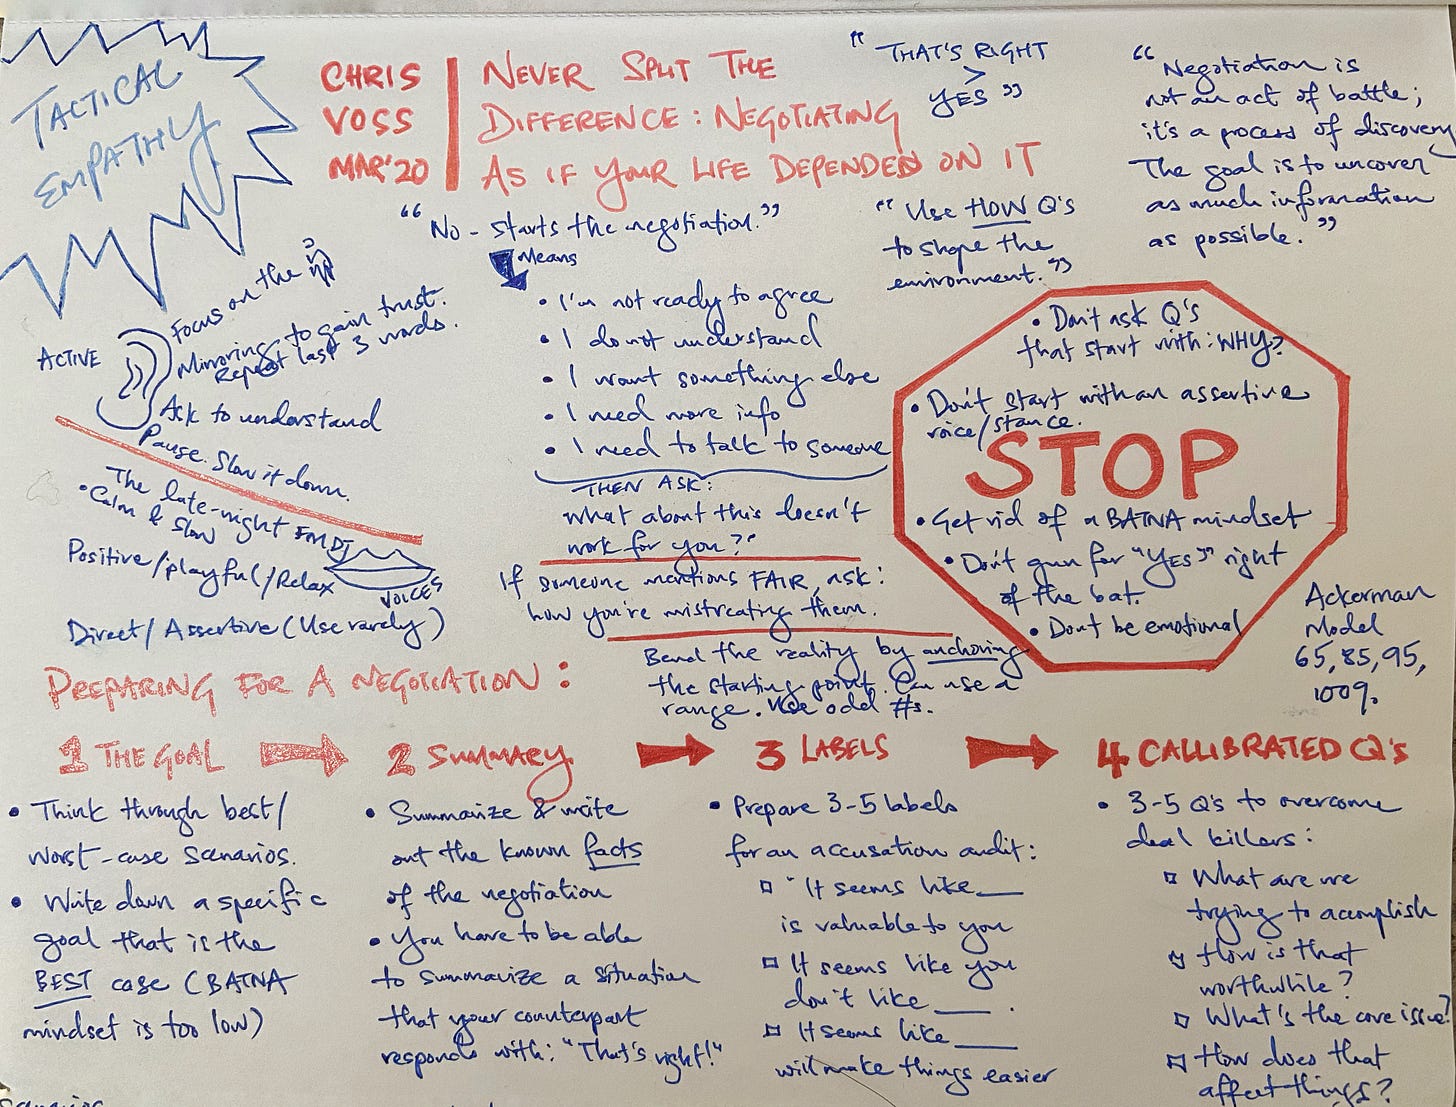 TACTICAL
EMPATHY
CHRIS
VOSS
MAR'20
NEVER SPLIT THE
DIFFERENCE: NEGOTIATING
AS IF YOUR LIFE DEPENDED ON IT
"THAT'S RIGHT
>
YES"
"Negotiation is
not an act of battle;
it's a process of discovery
The goal is to uncover
as much information
as possible."
"No - starts the negotiation."
Means
• I'm not ready to agree
• I do not understand
• I want something else
• I need more info
• I need to talk to someone
THEN ASK:
What about this doesn't
work for you?"
If someone mentions FAIR, ask:
how you're mistreating them.
Bend the reality by anchoring
the starting point. Can use a
range. Use odd #s.
"Use HOW Q's
to shape the
environment."
ACTIVE
Focus on the
Mirroring to gain trust.
Repeat last 3 words.
Ask to understand
Pause. Slow it down.
The late-night FM DJ
• Calm & Slow
Positive/playful/Relax
VOICES
Direct/Assertive (Use rarely)
• Don't ask Q's
that start with: WHY?
• Don't start with an assertive
voice/stance.
STOP
• Get rid of a BATNA mindset
• Don't gun for "YES" right
of the bat.
• Don't be emotional
Ackerman
Model
65, 85, 95,
100%
PREPARING FOR A NEGOTIATION:
1 THE GOAL
• Think through best/
worst-case scenarios.
• Write down a specific
goal that is the
BEST case (BATNA
mindset is too low)
2 SUMMARY
• Summarize & write
out the known facts
of the negotiation
• You have to be able
to summarize a situation
that your counterpart
responds with: "That's right!"
3 LABELS
• Prepare 3-5 labels
for an accusation audit:
"It seems like ___
is valuable to you
It seems like you
don't like ___.
It seems like ___
will make things easier
4 CALLIBRATED Q's
• 3-5 Q's to overcome
deal killers:
What are we
trying to accomplish
How is that
worthwhile?
What's the core issue?
How does that
affect things?